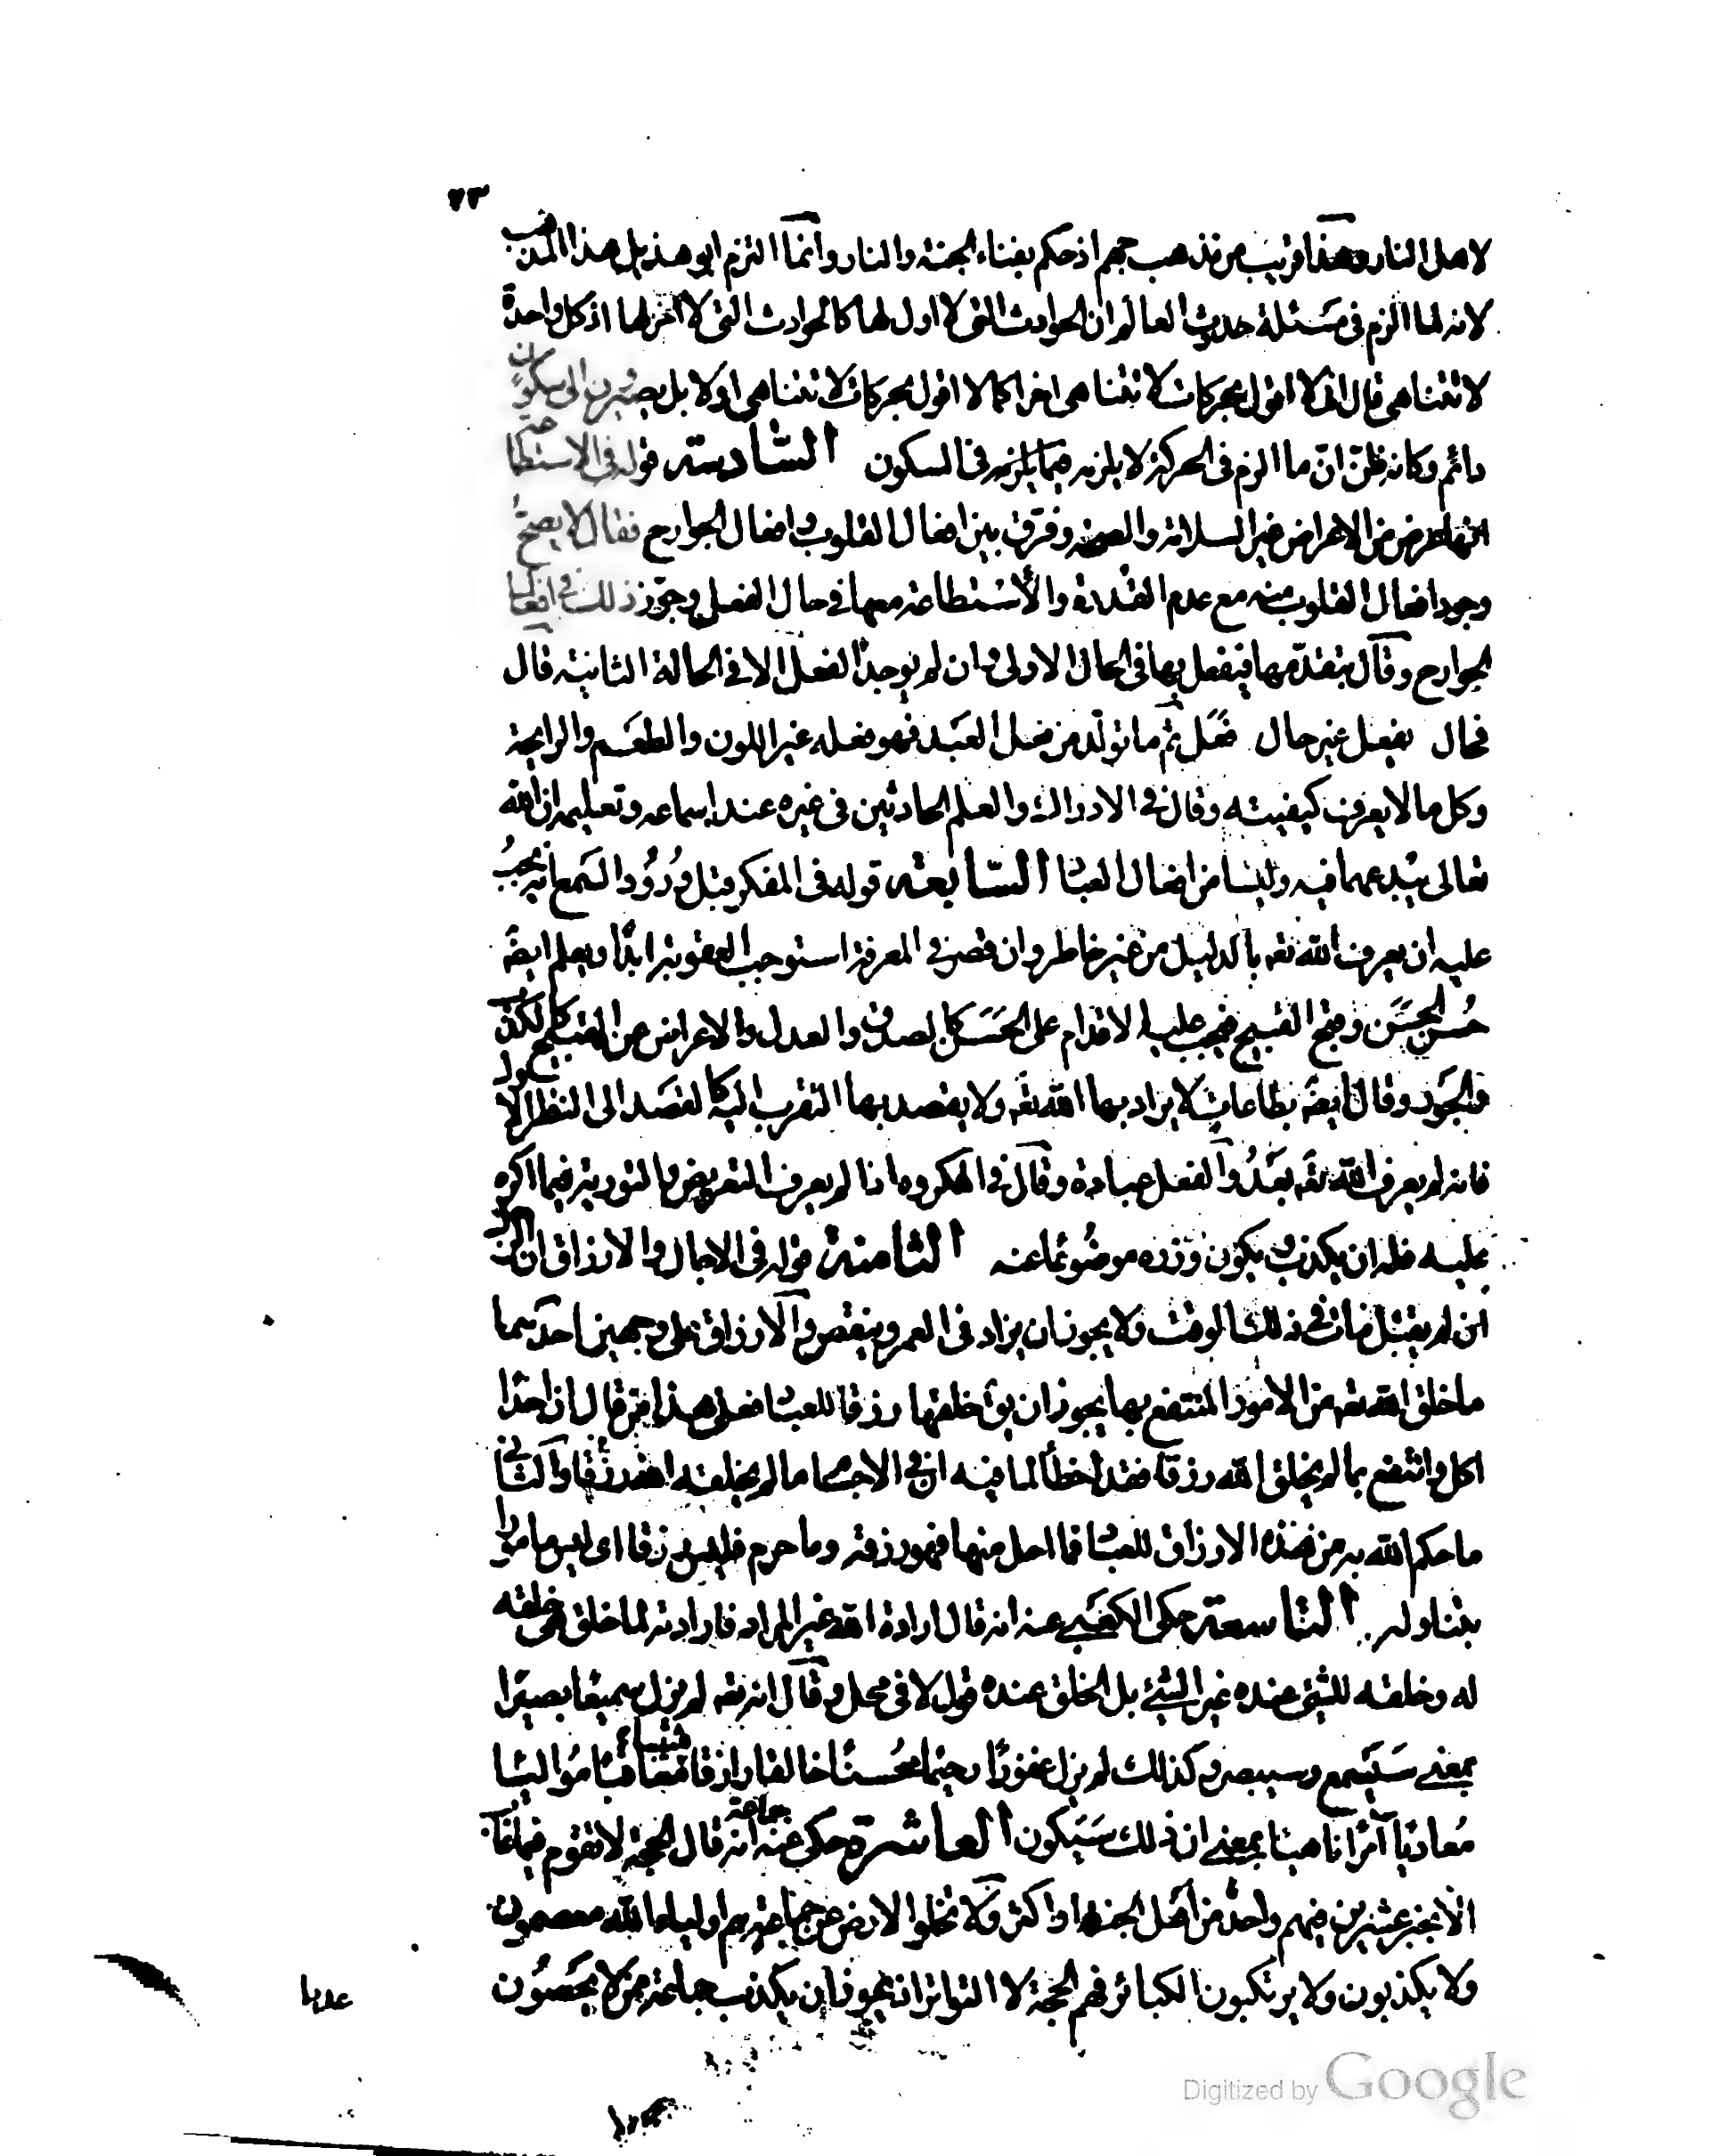 ٢٣
لاهل النار وهذا قريب من مذهب جهم اذ حكم بفناء الجنة والنار وانما التزم ابو هذيل هذا المذهب
لانه لما الزم فى مسئلة حدوث العالم ان الحوادث التى لا اول لها كالحوادث التى لا اخر لها اذ كل واحدة
لا تتناهى قال انى لا اقول بحركات لا تتناهى اخرا كما لا اقول بحركات لا تتناهى اولا بل يصيرون الى سكون
دائم وكانه ظن ان ما الزم فى الحركة لا يلزمه فى السكون السادسة قوله فى الاستطاعة
انها عرض من الاعراض غير السلامة والصحة وفرق بين افعال القلوب وافعال الجوارح فقال لا يصح
وجود افعال القلوب منه مع عدم القدرة والاستطاعة معها فى حال الفعل وجوز ذلك فى افعال
الجوارح وقال بتقدمها فيفعل بها فى الحال الاولى وان لم يوجد الفعل الا فى الحالة الثانية قال
فحال يفعل غير حال فعل ثم ما تولد من فعل العبد فهو فعله غير اللون والطعم والرايحة
وكل ما لا يعرف كيفيته وقال فى الادراك والعلم الحادثين فى غيره عند اسماعه وتعليمه ان الله
تعالى يبدعهما فيه وليسا من افعال العباد السابعة قوله فى المفكر قبل ورود السمع انه يجب
عليه ان يعرف الله تعه بالدليل من غير خاطر وان قصر فى المعرفة استوجب العقوبة ابدا ويعلم ايضً
حسن الحسن وقبح القبيح فيجب عليه الاقدام على الحسن كالصدق والعدل والاعراض عن القبيح كالكذب
والجور وقال ايضً بطاعات لا يراد بها الله تعه ولا يقصد بها التقرب اليه كالقصد الى النظر الاول
فانه لم يعرف الله تعه بعد والفعل عبادة وقال فى المكروه اذا لم يعرف التعريض والتورية فيما اكره
عليه فله ان يكذب ويكون وزره موضوعا عنه الثامنة قوله فى الاجال والارزاق ان الرجل
ان لم يقتل مات فى ذلك الوقت ولا يجوز ان يزاد فى العمر وينقص والارزاق على وجهين احدهما
ما خلق الله تعه من الامور المنتفع بها يجوز ان يق خلقها رزقا للعباد فعلى هذا من قال ان احدا
اكل وانتفع بما لم يخلق الله رزقا فقد اخطأ لما فيه ان فى الاجسام ما لم يخلقه الله رزقا والثانى
ما حكم الله به من هذه الارزاق للعباد فما احل منها فهو رزقه وما حرم فليس رزقا اى ليس مامورا
بتناوله التاسعة حكى الكعبى عنه انه قال ارادة الله غير المراد فارادته لما خلق هى خلقه
له وخلقه للشى عنده غير الشئ بل الخلق عنده قول لا فى محل وقال انه تعه لم يزل سميعا بصيرا
بمعنى سيسمع وسيبصر وكذلك لم يزل غفورا رحيما محسنا خالقا رازقا مثيبا معاقبا مواليا
معاديا آمرا ناهيا بمعنى ان ذلك سيكون العاشرة حكى عنه جماعة انه قال الحجة لا تقوم فيما غاب
الا بخبر عشرين فيهم واحد من اهل الجنة او اكثر ولا تخلوا الارض عن جماعة هم اولياء الله معصمون
ولا يكذبون ولا يرتكبون الكبائر فهم الحجة لا التواتر اذ يجوز ان يكذب جماعة ممن لا يحصون
عددا